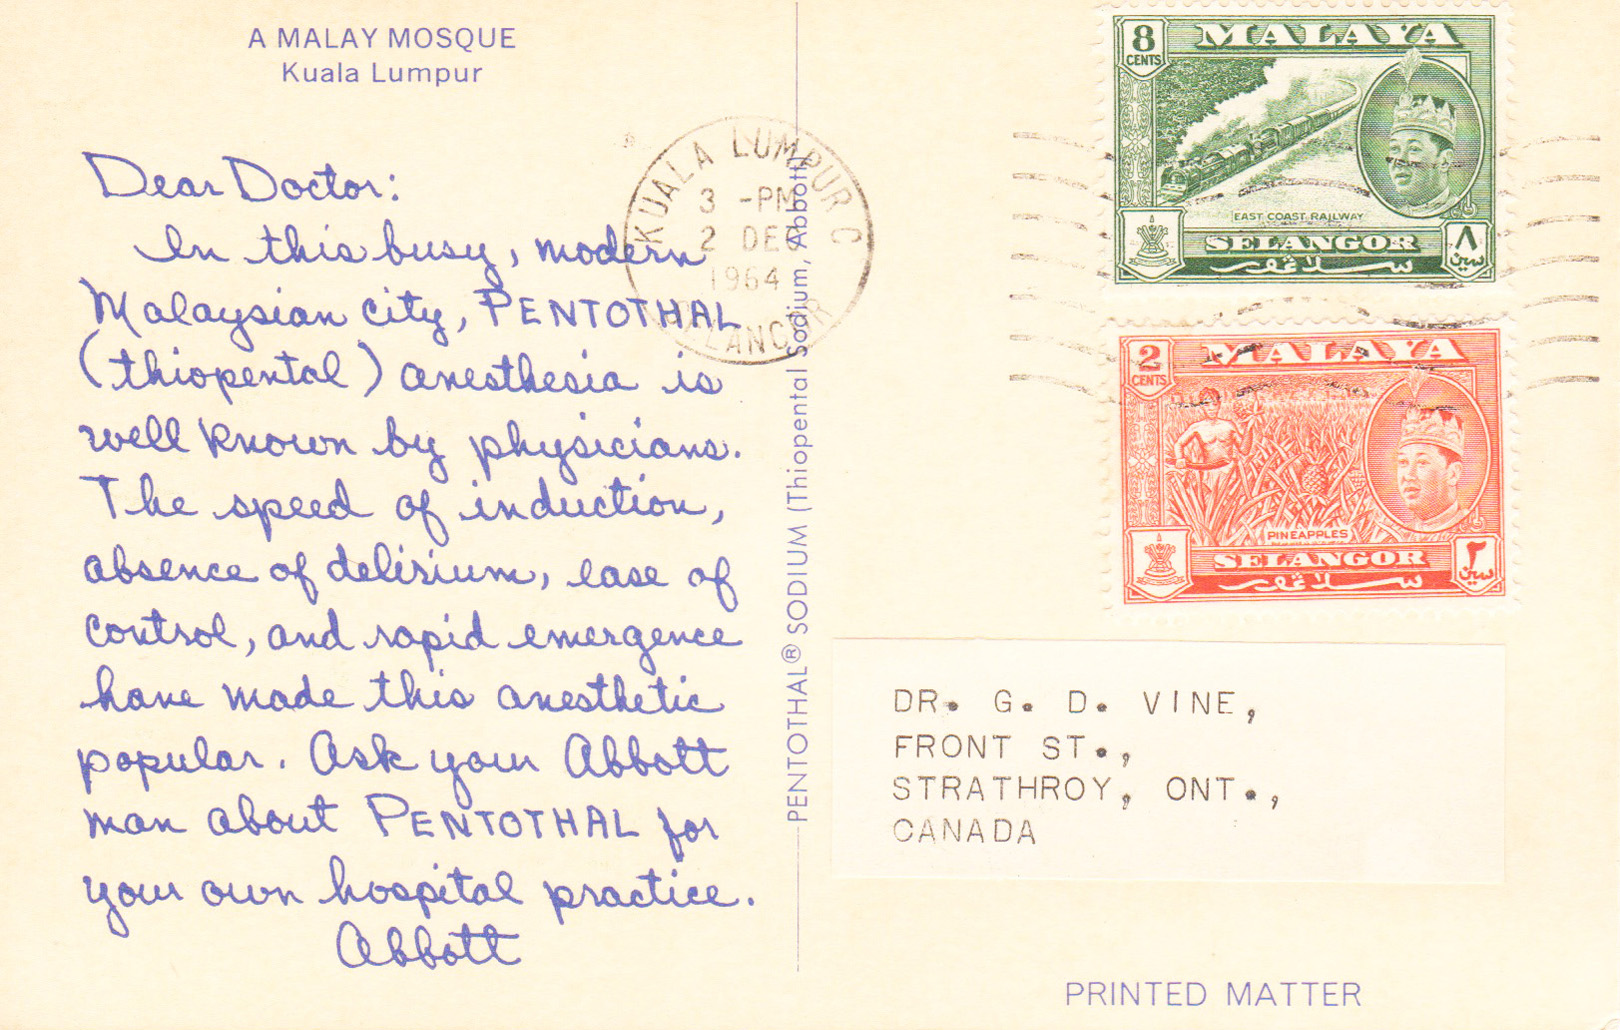 A MALAY MOSQUE
Kuala Lumpur
Dear Doctor:
In this busy, modern
Malaysian city, PENTOTHAL
(thiopental) anesthesia is
well known by physicians.
The speed of induction,
absence of delirium, ease of
control, and rapid emergence
have made this anesthetic
popular. Ask your Abbott
man about PENTOTHAL for
your own hospital practice.
Abbott
PENTOTHAL® SODIUM (Thiopental Sodium, Abbott)
KUALA LUMPUR C
3 -PM
2 DEC
1964
SELANGOR
8 CENTS
MALAYA
EAST COAST RAILWAY
SELANGOR
سلاڠور
٨ سين
2 CENTS
MALAYA
PINEAPPLES
SELANGOR
سلاڠور
٢ سين
DR. G. D. VINE,
FRONT ST.,
STRATHROY, ONT.,
CANADA
PRINTED MATTER